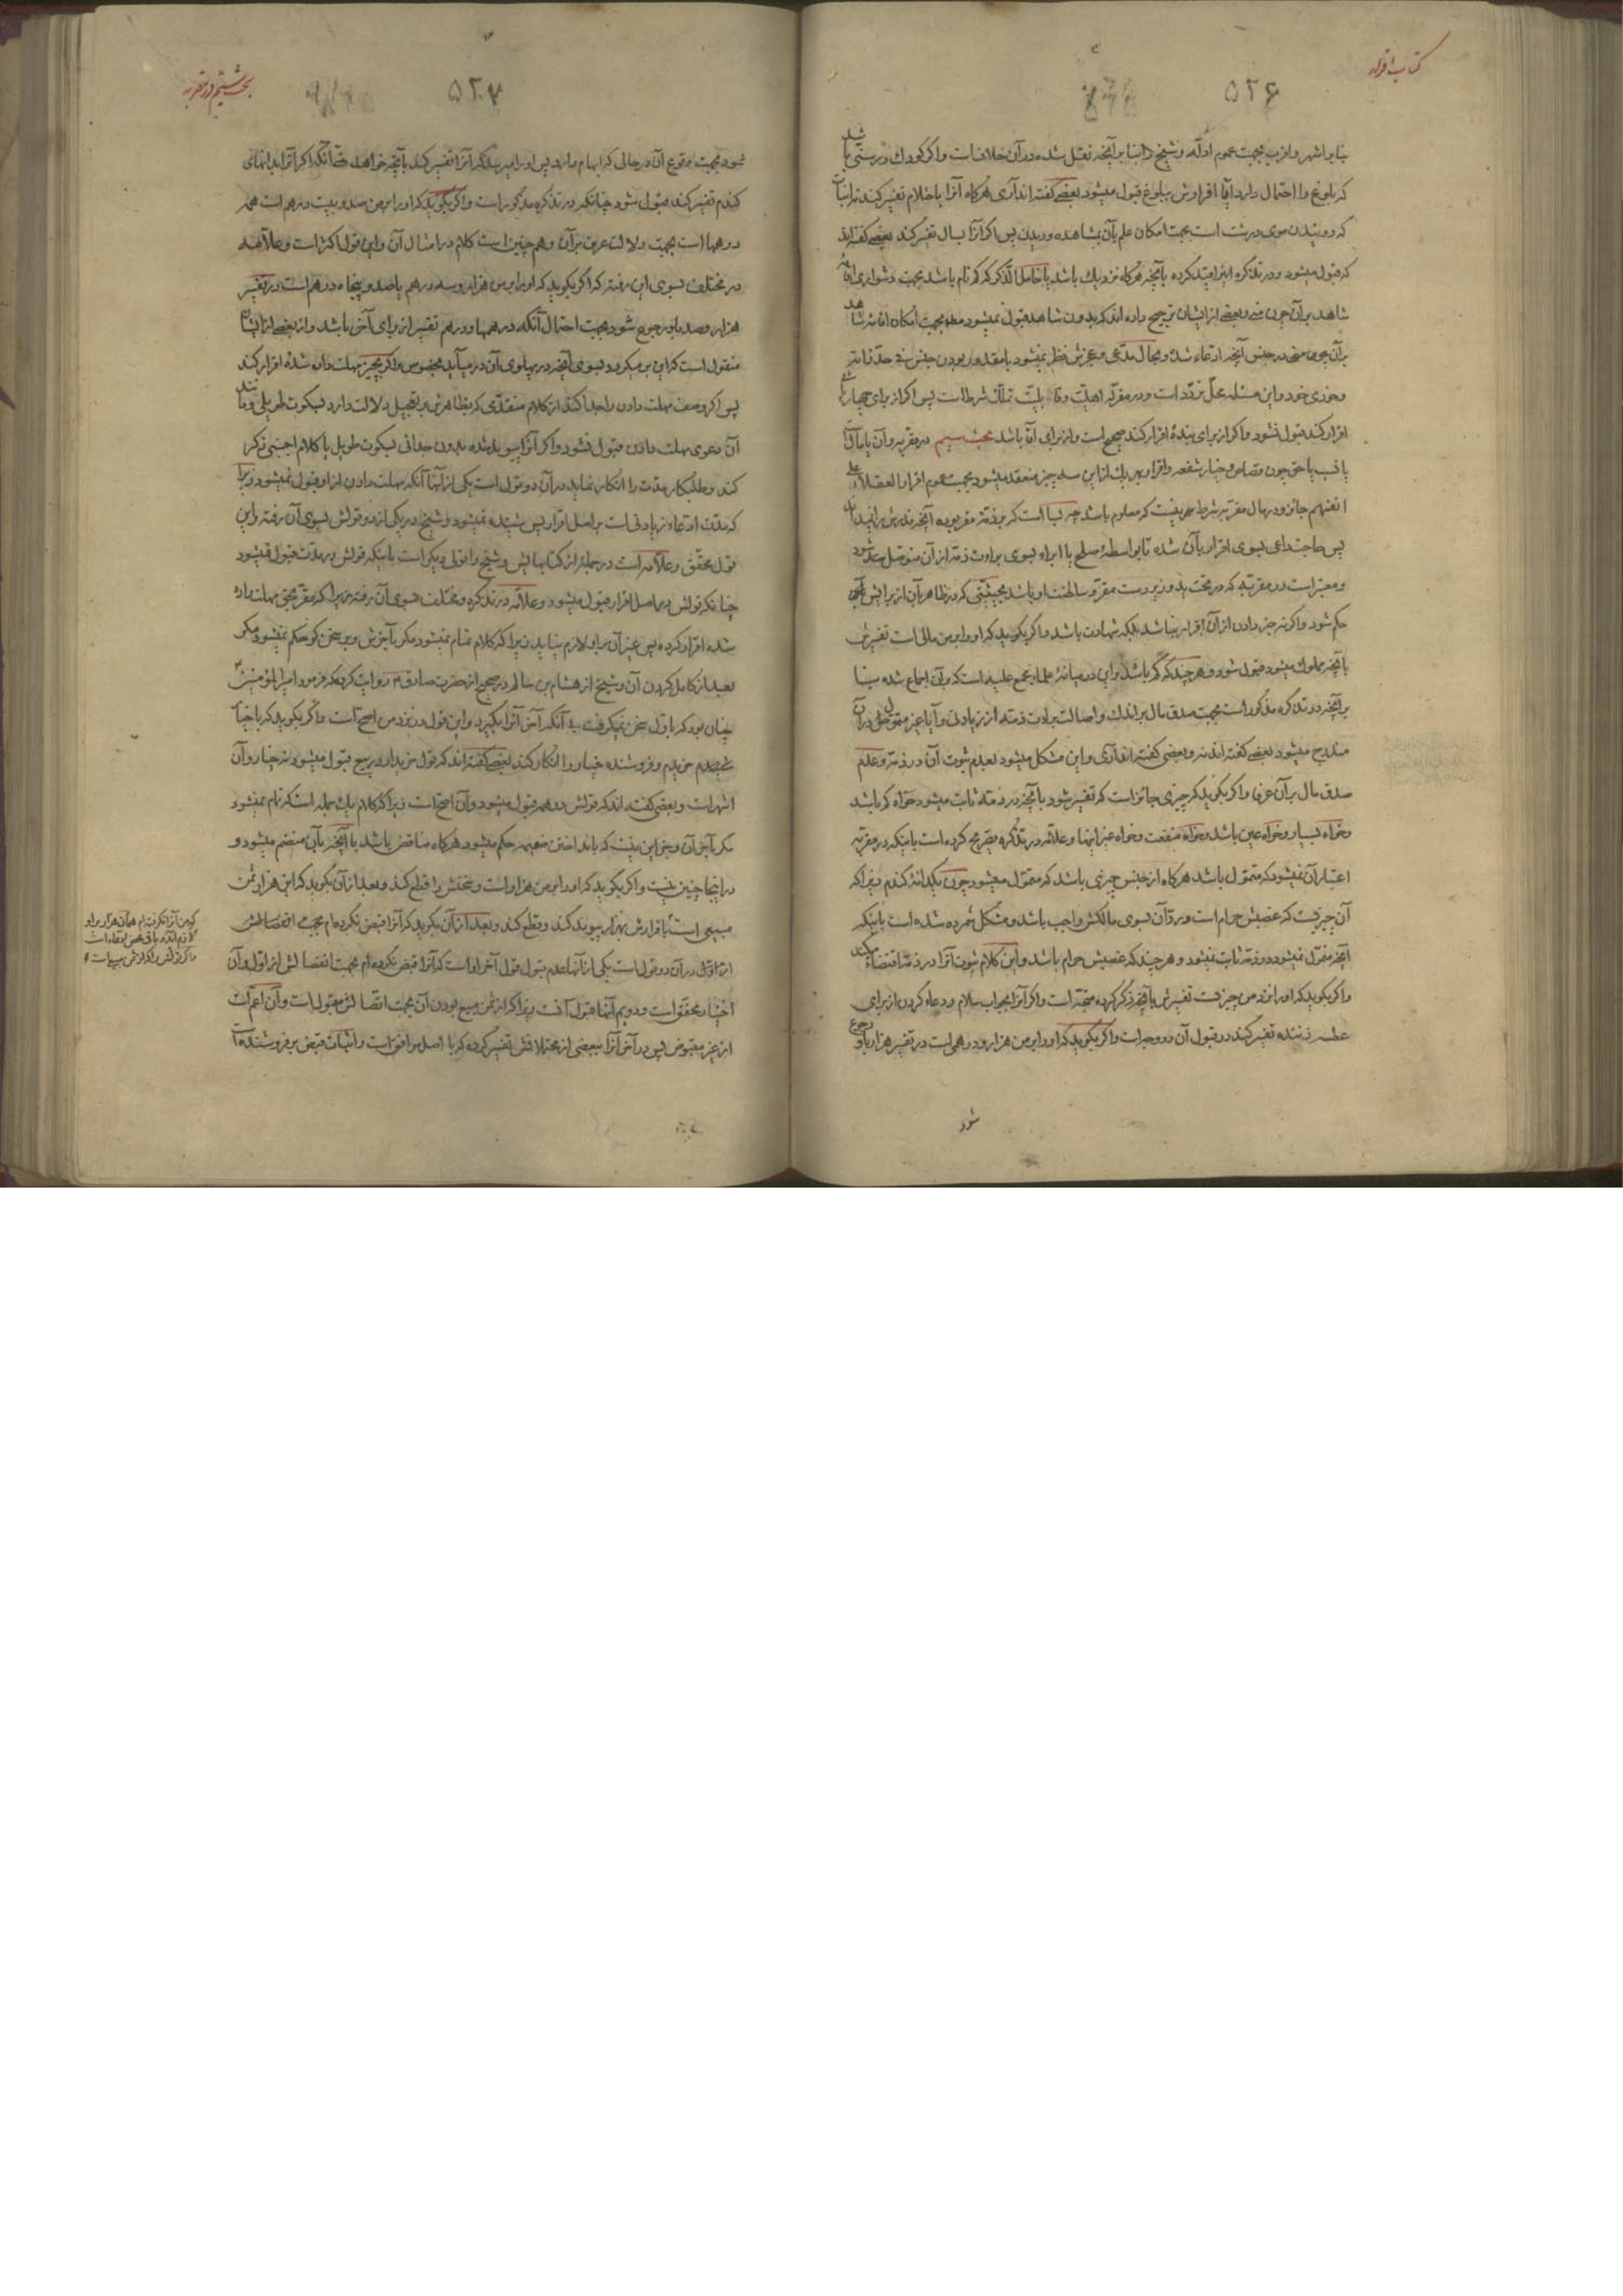 کتاب اقرار
۵۲۶
بنا بر اشهر و اقرب بجهت عموم ادلّه و شیخ را بنا بر آنچه نقل شده در آن خلافست و اگر کودک در سنّی باشد
که بلوغ را احتمال دارد آیا اقرارش ببلوغ قبول میشود بعضی گفته‌اند آری هرگاه آنرا باحتلام تفسیر کند نه انبات
که روییدن موی درشت است بجهت امکان علم بآن بمشاهده و دیدن پس اگر آنرا بسال تفسیر کند بعضی گفته‌اند
که قبول میشود و در تذکره آنرا مقید کرده بآنچه هرگاه نزدیک باشد یا خامل الذکر که گم نام باشد بجهت دشواری اقامه
شاهد بر آن چون منی و بعضی از ایشان ترجیح داده‌اند که بدون شاهد قبول نمیشود مطلقا بجهت امکان اقامه شاهد
بر آن بجهت در جنس آنچه ادّعاء شده و بحال مدّعی و عجزش نظر نمیشود با مقدور بودن جنس فی حدّ ذاته
و این مسئله محلّ تردّد است و در مقرّ له اهلیّت و قابلیّت تملّک شرطست پس اگر از برای چهارپائی
اقرار کند قبول نشود و اگر از برای بندهٔ اقرار کند صحیح است و از برای آقا باشد بحث سیم در مقرّ به و آن یا مالست
یا نسب یا حق چون قصاص و خیار شفعه و اقرار بهر یک از این سه چیز منعقد میشود بجهت عموم اقرار العقلاء علی
انفسهم جائز و در مال مقرّ به شرط نیست که معلوم باشد چه بسا است که بر ذمّه مقر بوده آنچه قدرش را نمیداند
پس حاجت داعی بسوی اقرار بآن شده تا بواسطهٔ صلح یا ابراء بسوی براءت ذمّه از آن متوصّل شود
و معتبر است در مقرّ به که در تحت ید و زیردست مقرّ و سلطنت او باشد بحیثیّتی که در ظاهر بآن از برایش
حکم شود و اگر نه خبر دادن از آن اقرار نباشد بلکه شهادت باشد و اگر بگوید که او را بر من مالی است تفسیرش
بآنچه مملوک میشود قبول شود و هرچند که کم باشد و این در میانهٔ علماء مجمع علیه است که بر آن اجماع شده بنا
بر آنچه در تذکره مذکور است بجهت صدق مال بر اندک و اصالت براءت ذمّه از زیادتی و آیا غیر متموّل در آن
مندرج میشود بعضی گفته‌اند نه و بعضی گفته‌اند آری و این مشکل میشود بعدم ثبوت آن در ذمّه و عدم
صدق مال بر آن عرفا و اگر بگوید که چیزی جائز است که تفسیر شود بآنچه در ذمّه ثابت میشود خواه کم باشد
و خواه بسیار و خواه عین باشد و خواه منفعت و خواه غیر اینها و علّامه در تذکره تصریح کرده است باینکه در مقرّ به
اعتبار آن نمیشود که متموّل باشد هرگاه از جنس چیزی باشد که متموّل میشود چون یکدانهٔ گندم زیرا که
آن چیزیست که غصبش حرام است و ردّ آن بسوی مالکش واجب باشد و مشکل شمرده شده است باینکه
آنچه متموّل نمیشود در ذمّه ثابت نمیشود و هرچند که غصبش حرام باشد و این کلام ثبوت آنرا در ذمّه اقتضاء میکند
و اگر بگوید که او را نزد من چیزیست تفسیرش بآنچه ذکر کرده متّجه است و اگر آنرا بجواب سلام و دعاء کردن از برای
عطسه زننده تفسیر کند در قبول آن دو وجه است و اگر بگوید که او را بر من هزار و درهمی است در تفسیر هزار باو رجوع
شود
بحث ششم در مقرّ به
۵۲۷
شود بجهت وقوع آن در حالی که ابهام دارد پس او را میرسد که آنرا تفسیر کند بآنچه خواهد حتی آنکه اگر آنرا بدانهای
گندم تفسیر کند قبول شود چنانکه در تذکره مذکور است و اگر بگوید که او را بر من صد و بیست درهم است همه
درهمها است بجهت دلالت عرف بر آن و هم چنین است کلام در امثال آن و این قول اکثر است و علّامه
در مختلف بسوی این رفته که اگر بگوید که او را بر من هزار و سه درهم یا صد و پنجاه درهم است در تفسیر
هزار و صد باو رجوع شود بجهت احتمال آنکه درهمها و درهم تفسیر از برای آخر باشد و از بعضی از ایشان
منقول است که این بر میگردد بسوی آنچه در پهلوی آن درمیآید بخصوص و اگر بچیز مهلت داده شدهٔ اقرار کند
پس اگر وصف مهلت دادن را جدا کند از کلام متقدّمی که بظاهرش بر تعجیل دلالت دارد بسکوت طویلی و مانند
آن دعوی مهلت دادن قبول نشود و اگر آنرا پیوند شده بدون جدائی بسکوت طویل یا کلام اجنبی ذکر
کند و طلبکار مدّت را انکار نماید در آن دو قول است یکی از آنها آنکه مهلت دادن از او قبول نمیشود زیرا
که مدّت ادّعاء زیادتی است بر اصل اقرار پس شنیده نمیشود و شیخ در یکی از دو قولش بسوی آن رفته و این
قول محقّق و علّامه است در جملهٔ از کتابهایش و شیخ را قولی دیگر است باینکه قولش در مدّت قبول میشود
چنانکه قولش در اصل اقرار قبول میشود و علّامه در تذکره و مختلف بسوی آن رفته زیرا که مقر بحقّ مهلت داده
شده اقرار کرده پس غیر آن بر او لازم نیاید زیرا که کلام تمام نمیشود مگر بآخرش و بر سخن گو حکم نمیشود مگر
بعد از کامل کردن آن و شیخ از هشام بن سالم در صحیح از حضرت صادق م روایت کرده که فرمود امیر المؤمنین
چنان بود که باول سخن نمیگرفت بی آنکه آخر آنرا بگیرد و این قول در نزد من اصح است و اگر بگوید که باختیار
خریدم و فروشنده خیار را انکار کند بعضی گفته‌اند که قول خریدار در بیع قبول میشود نه خیار و آن
اشهر است و بعضی گفته‌اند که قولش در همه قبول میشود و آن اصح است زیرا که کلام یک جمله است که تمام نمیشود
مگر بآخر آن و جز این نیست که بانداختن ضمیمه حکم میشود هرگاه مناقض باشد با آنچه بآن منضم میشود و
در اینجا چنین نیست و اگر بگوید که او را بر من هزار است و سخنش را قطع کند و بعد از آن بگوید که این هزار ثمن
مبیعی است باقرارش بهزار پیوند کند و قطع کند و بعد از آن بگوید که آنرا قبض نکرده‌ام بجهت انفصالش
از اوّل در آن دو قول است یکی از آنها عدم قبول قول آخر او است که آنرا قبض نکرده‌ام بجهت انفصالش از اوّل و آن
اختیار محقّق است و دویم آنها قبول آنست زیرا که از ثمن مبیع بودن آن بجهت اتّصالش مقبول است و آن اعم است
از غیر مقبوض پس در آخر آنرا ببعضی از محتملاتش تفسیر کرده که با اصل موافق است و اثبات قبض بر فروشنده است
که من آنرا نگرفته‌ام همان هزار بر او